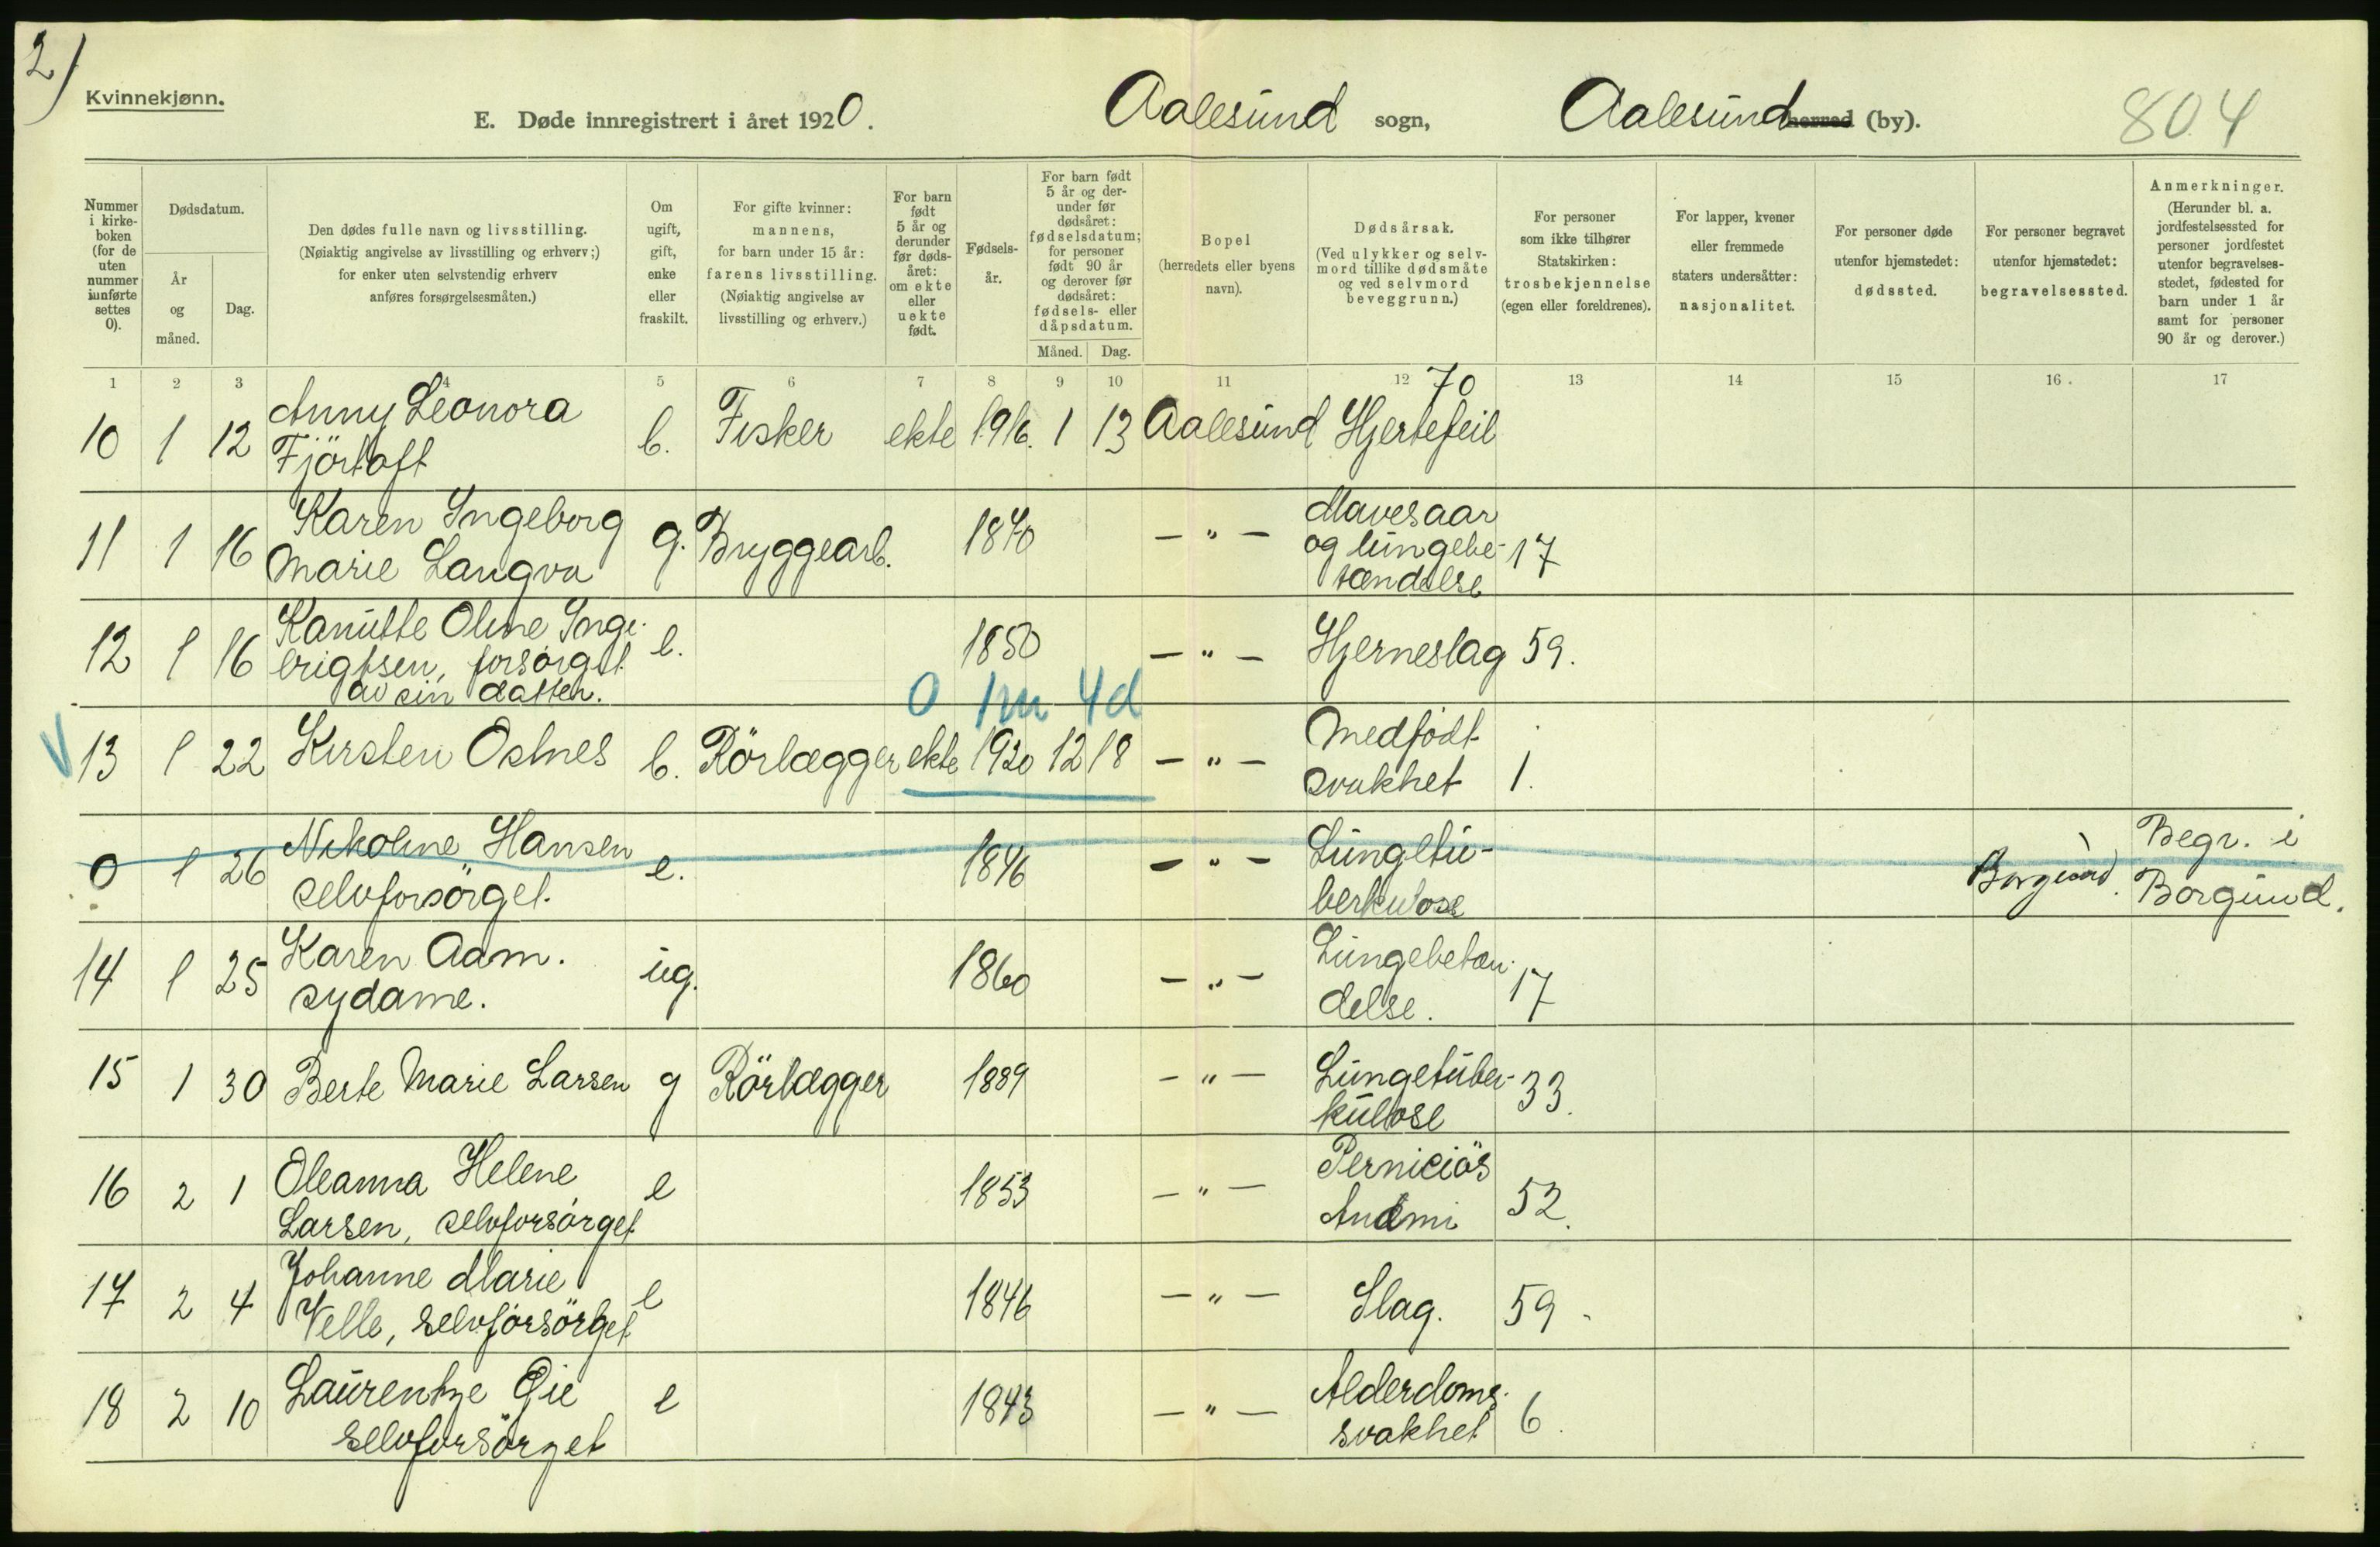 2)
Kvinnekjønn.
E. Døde innregistrert i året 1920.
Aalesund sogn,
Aalesund herred (by).
804
Nummer i kirke-boken (for de uten nummer innførte settes 0).
Dødsdatum.
År og måned.
Dag.
Den dødes fulle navn og livsstilling.
(Nøiaktig angivelse av livsstilling og erhverv;)
for enker uten selvstendig erhverv
anføres forsørgelsesmåten.)
Om ugift, gift, enke eller fraskilt.
For gifte kvinner:
mannens,
for barn under 15 år:
farens livsstilling.
(Nøiaktig angivelse av
livsstilling og erhverv.)
For barn født 5 år og derunder før døds-året: om ekte eller uekte født.
Fødsels-år.
For barn født 5 år og der-under før dødsåret: fødselsdatum; for personer født 90 år og derover før dødsåret: fødsels- eller dåpsdatum.
Måned. Dag.
Bopel
(herredets eller byens navn).
Dødsårsak.
(Ved ulykker og selv-mord tillike dødsmåte og ved selvmord beveggrunn.)
For personer som ikke tilhører Statskirken: trosbekjennelse (egen eller foreldrenes).
For lapper, kvener eller fremmede staters undersåtter: nasjonalitet.
For personer døde utenfor hjemstedet: dødssted.
For personer begravet utenfor hjemstedet: begravelsessted.
Anmerkninger.
(Herunder bl. a. jordfestelsessted for personer jordfestet utenfor begravelses-stedet, fødested for barn under 1 år samt for personer 90 år og derover.)
1 2 3 4 5 6 7 8 9 10 11 12 13 14 15 16. 17
70
10 1 12 Anny Leonora Fjörtoft b. Fisker ekte 1916. 1 13 Aalesund Hjertefeil
11 1 16 Karen Ingeborg Marie Langva g. Bryggearb. 1840 — " — Mavesaar og lungebe-tændelse 17
12 1 16 Kanutte Oline Inge-brigtsen, forsørget av sin datter. e. 1850 — " — Hjerneslag 59.
0 1m 4d
V 13 1 22 Kirsten Ostnes b. Rörlægger ekte 1920 12 18 — " — Medfödt svakhet 1.
0 1 26 Nikoline Hansen selvforsörget. e. 1846 — " — Lungetu-berkulose Borgund. Begr. i Borgund.
14 1 25 Karen Aam. sydame. ug. 1860 — " — Lungebetæn-delse. 17
15 1 30 Berte Marie Larsen g Rörlægger 1889 — " — Lungetuber-kulose 33.
16 2 1 Oleanna Helene Larsen, selvforsørget e 1853 — " — Perniciös Anæmi 52.
17 2 4 Johanne Marie Velle, selvforsörget e 1846 — " — Slag. 59.
18 2 10 Laurentze Gie selvforsörget e 1843 — " — Alderdoms-svakhet 6.